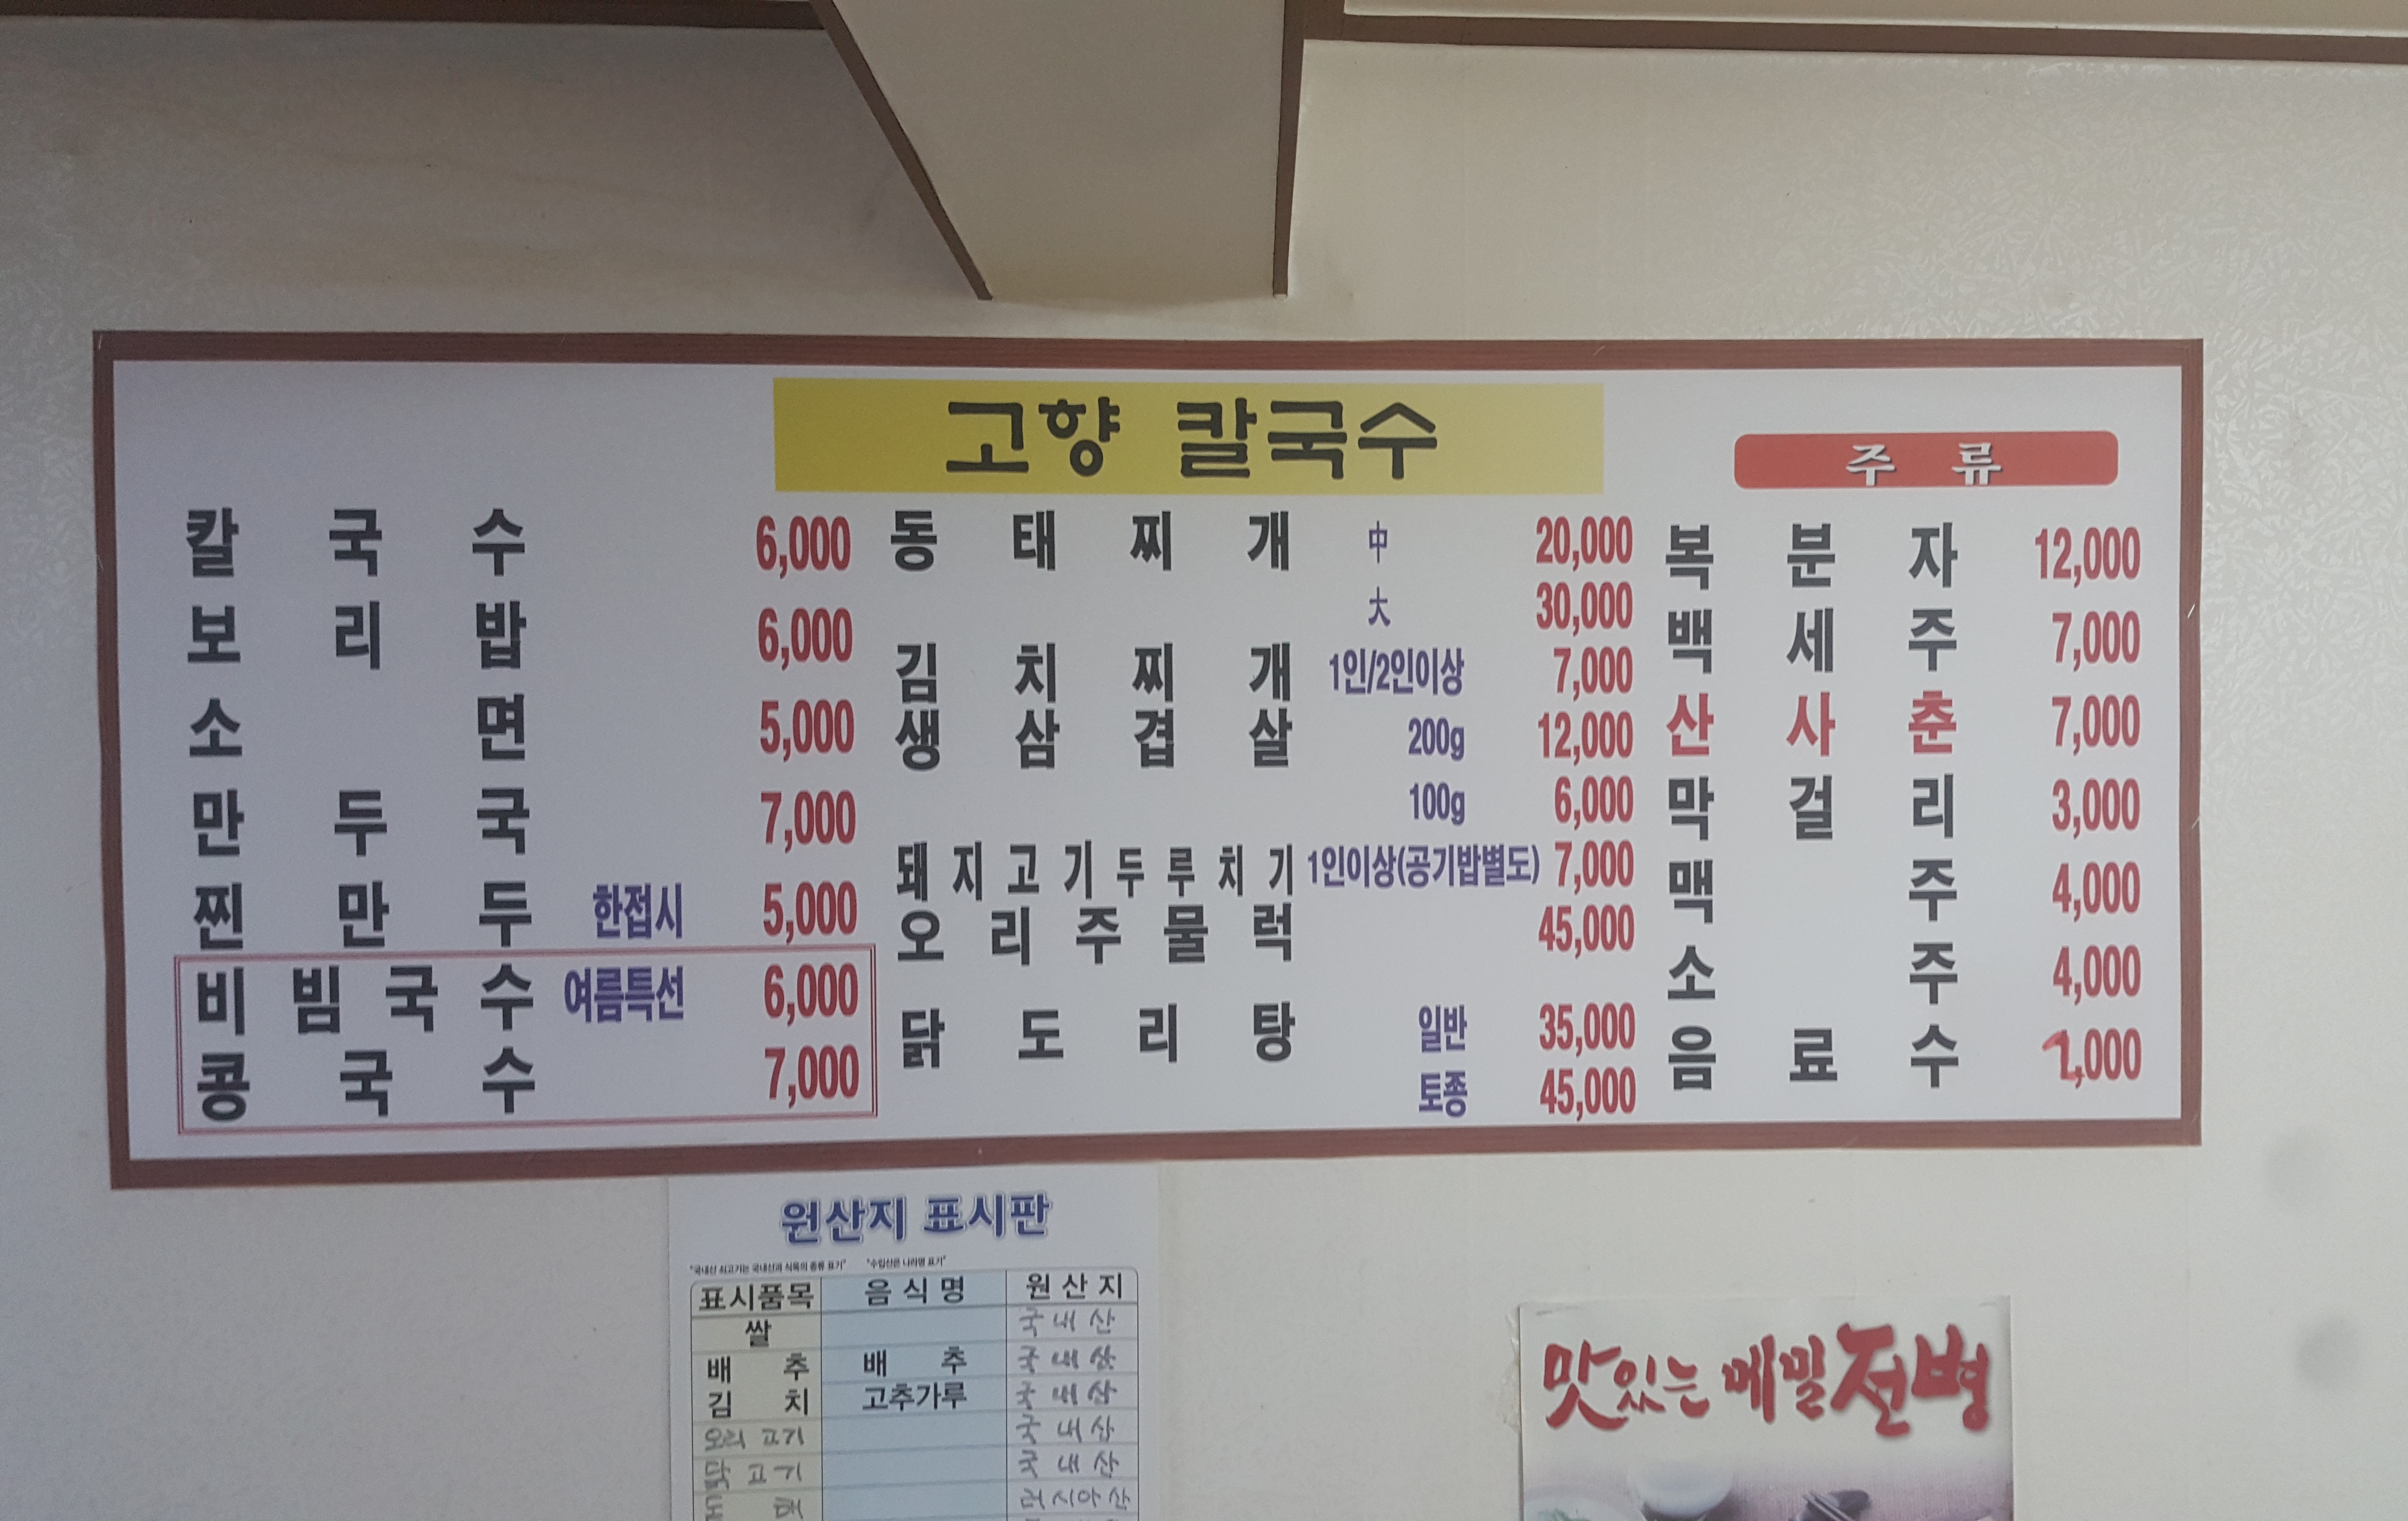 고향 칼국수
칼국수 6,000
보리밥 6,000
소면 5,000
만두국 7,000
찐만두 한접시 5,000
비빔국수 여름특선 6,000
콩국수 7,000
동태찌개 中 20,000
大 30,000
김치찌개 1인/2인이상 7,000
생삼겹살 200g 12,000
100g 6,000
돼지고기두루치기 1인이상(공기밥별도) 7,000
오리주물럭 45,000
닭도리탕 일반 35,000
토종 45,000
주류
복분자 12,000
백세주 7,000
산사춘 7,000
막걸리 3,000
맥주 4,000
소주 4,000
음료수 1,000
원산지 표시판
"국내산 쇠고기는 국내산과 식육의 종류 표기" "수입산은 나라명 표기"
표시품목 음식명 원산지
쌀 국내산
배추 배추 국내산
김치 고추가루 국내산
오리고기 국내산
닭고기 국내산
동태 러시아산
맛있는 메밀전병